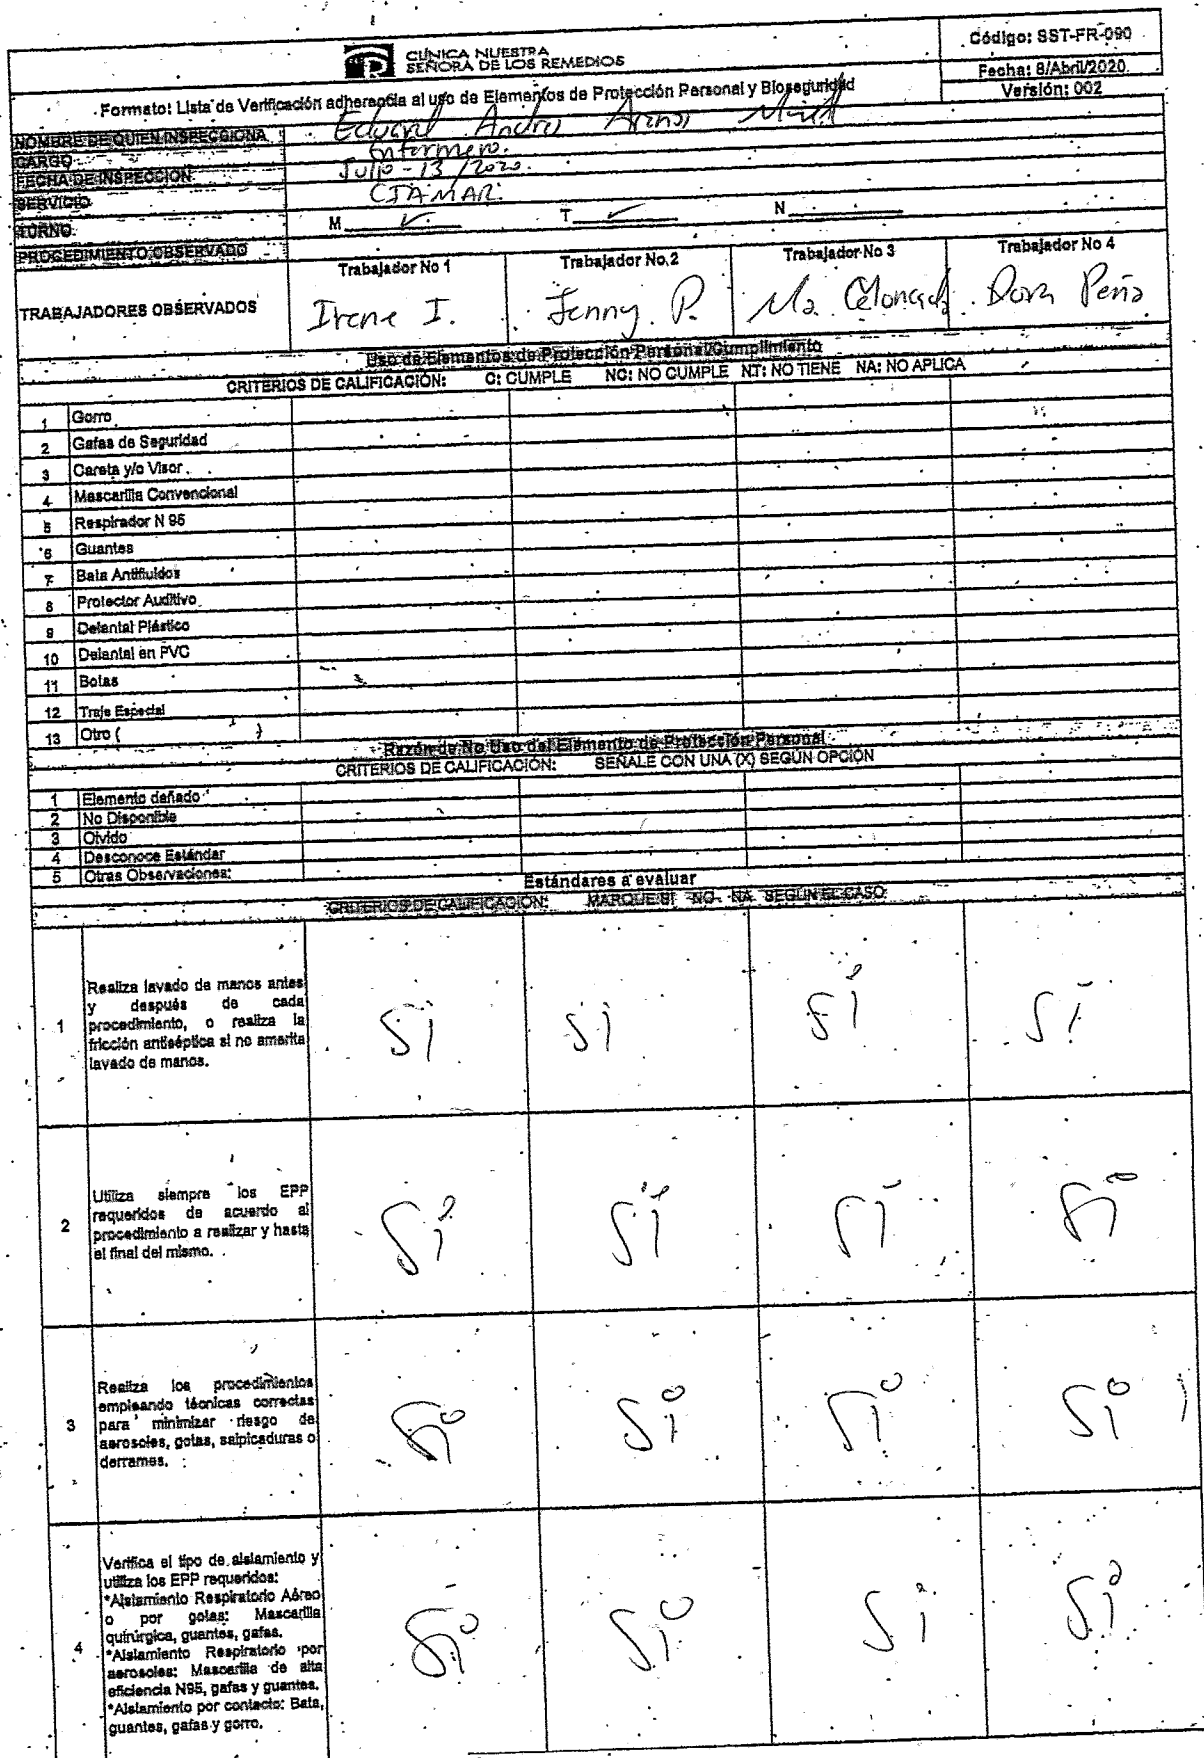 CLÍNICA NUESTRA
SEÑORA DE LOS REMEDIOS
Código: SST-FR-090
Fecha: 8/Abril/2020.
Versión: 002
Formato: Lista de Verificación adherencia al uso de Elementos de Protección Personal y Bioseguridad
NOMBRE DE QUIEN INSPECCIONA Andres
CARGO Enfermero.
FECHA DE INSPECCIÓN Julio-13/2020.
SERVICIO CIAMAR.
TURNO. M ✓ T ✓ N
PROCEDIMIENTO OBSERVADO
Trabajador No 1 Trabajador No.2 Trabajador No 3 Trabajador No 4
TRABAJADORES OBSERVADOS Irene I. Jenny P. Ma Dora Peña
Uso de Elementos de Protección Personal/Cumplimiento
CRITERIOS DE CALIFICACIÓN: C: CUMPLE NC: NO CUMPLE NT: NO TIENE NA: NO APLICA
1 Gorro
2 Gafas de Seguridad
3 Careta y/o Visor
4 Mascarilla Convencional
5 Respirador N 95
6 Guantes
7 Bata Antifluidos
8 Protector Auditivo
9 Delantal Plástico
10 Delantal en PVC
11 Botas
12 Traje Especial
13 Otro ( )
Razón de No Uso del Elemento de Protección Personal
CRITERIOS DE CALIFICACIÓN: SEÑALE CON UNA (X) SEGÚN OPCIÓN
1 Elemento dañado
2 No Disponible
3 Olvido
4 Desconoce Estándar
5 Otras Observaciones:
Estándares a evaluar
CRITERIOS DE CALIFICACIÓN: MARQUE SI NO NA SEGÚN EL CASO
Realiza lavado de manos antes
y después de cada
1 procedimiento, o realiza la
fricción antiséptica si no amerita
lavado de manos.
Si Si Si Si
Utiliza siempre los EPP
requeridos de acuerdo al
2 procedimiento a realizar y hasta
el final del mismo.
Si Si Si Si
Realiza los procedimientos
empleando técnicas correctas
3 para minimizar riesgo de
aerosoles, gotas, salpicaduras o
derrames.
Si Si Si Si
Verifica el tipo de aislamiento y
utiliza los EPP requeridos:
*Aislamiento Respiratorio Aéreo
o por gotas: Mascarilla
quirúrgica, guantes, gafas.
4 *Aislamiento Respiratorio por
aerosoles: Mascarilla de alta
eficiencia N95, gafas y guantes.
*Aislamiento por contacto: Bata,
guantes, gafas y gorro.
Si Si Si Si